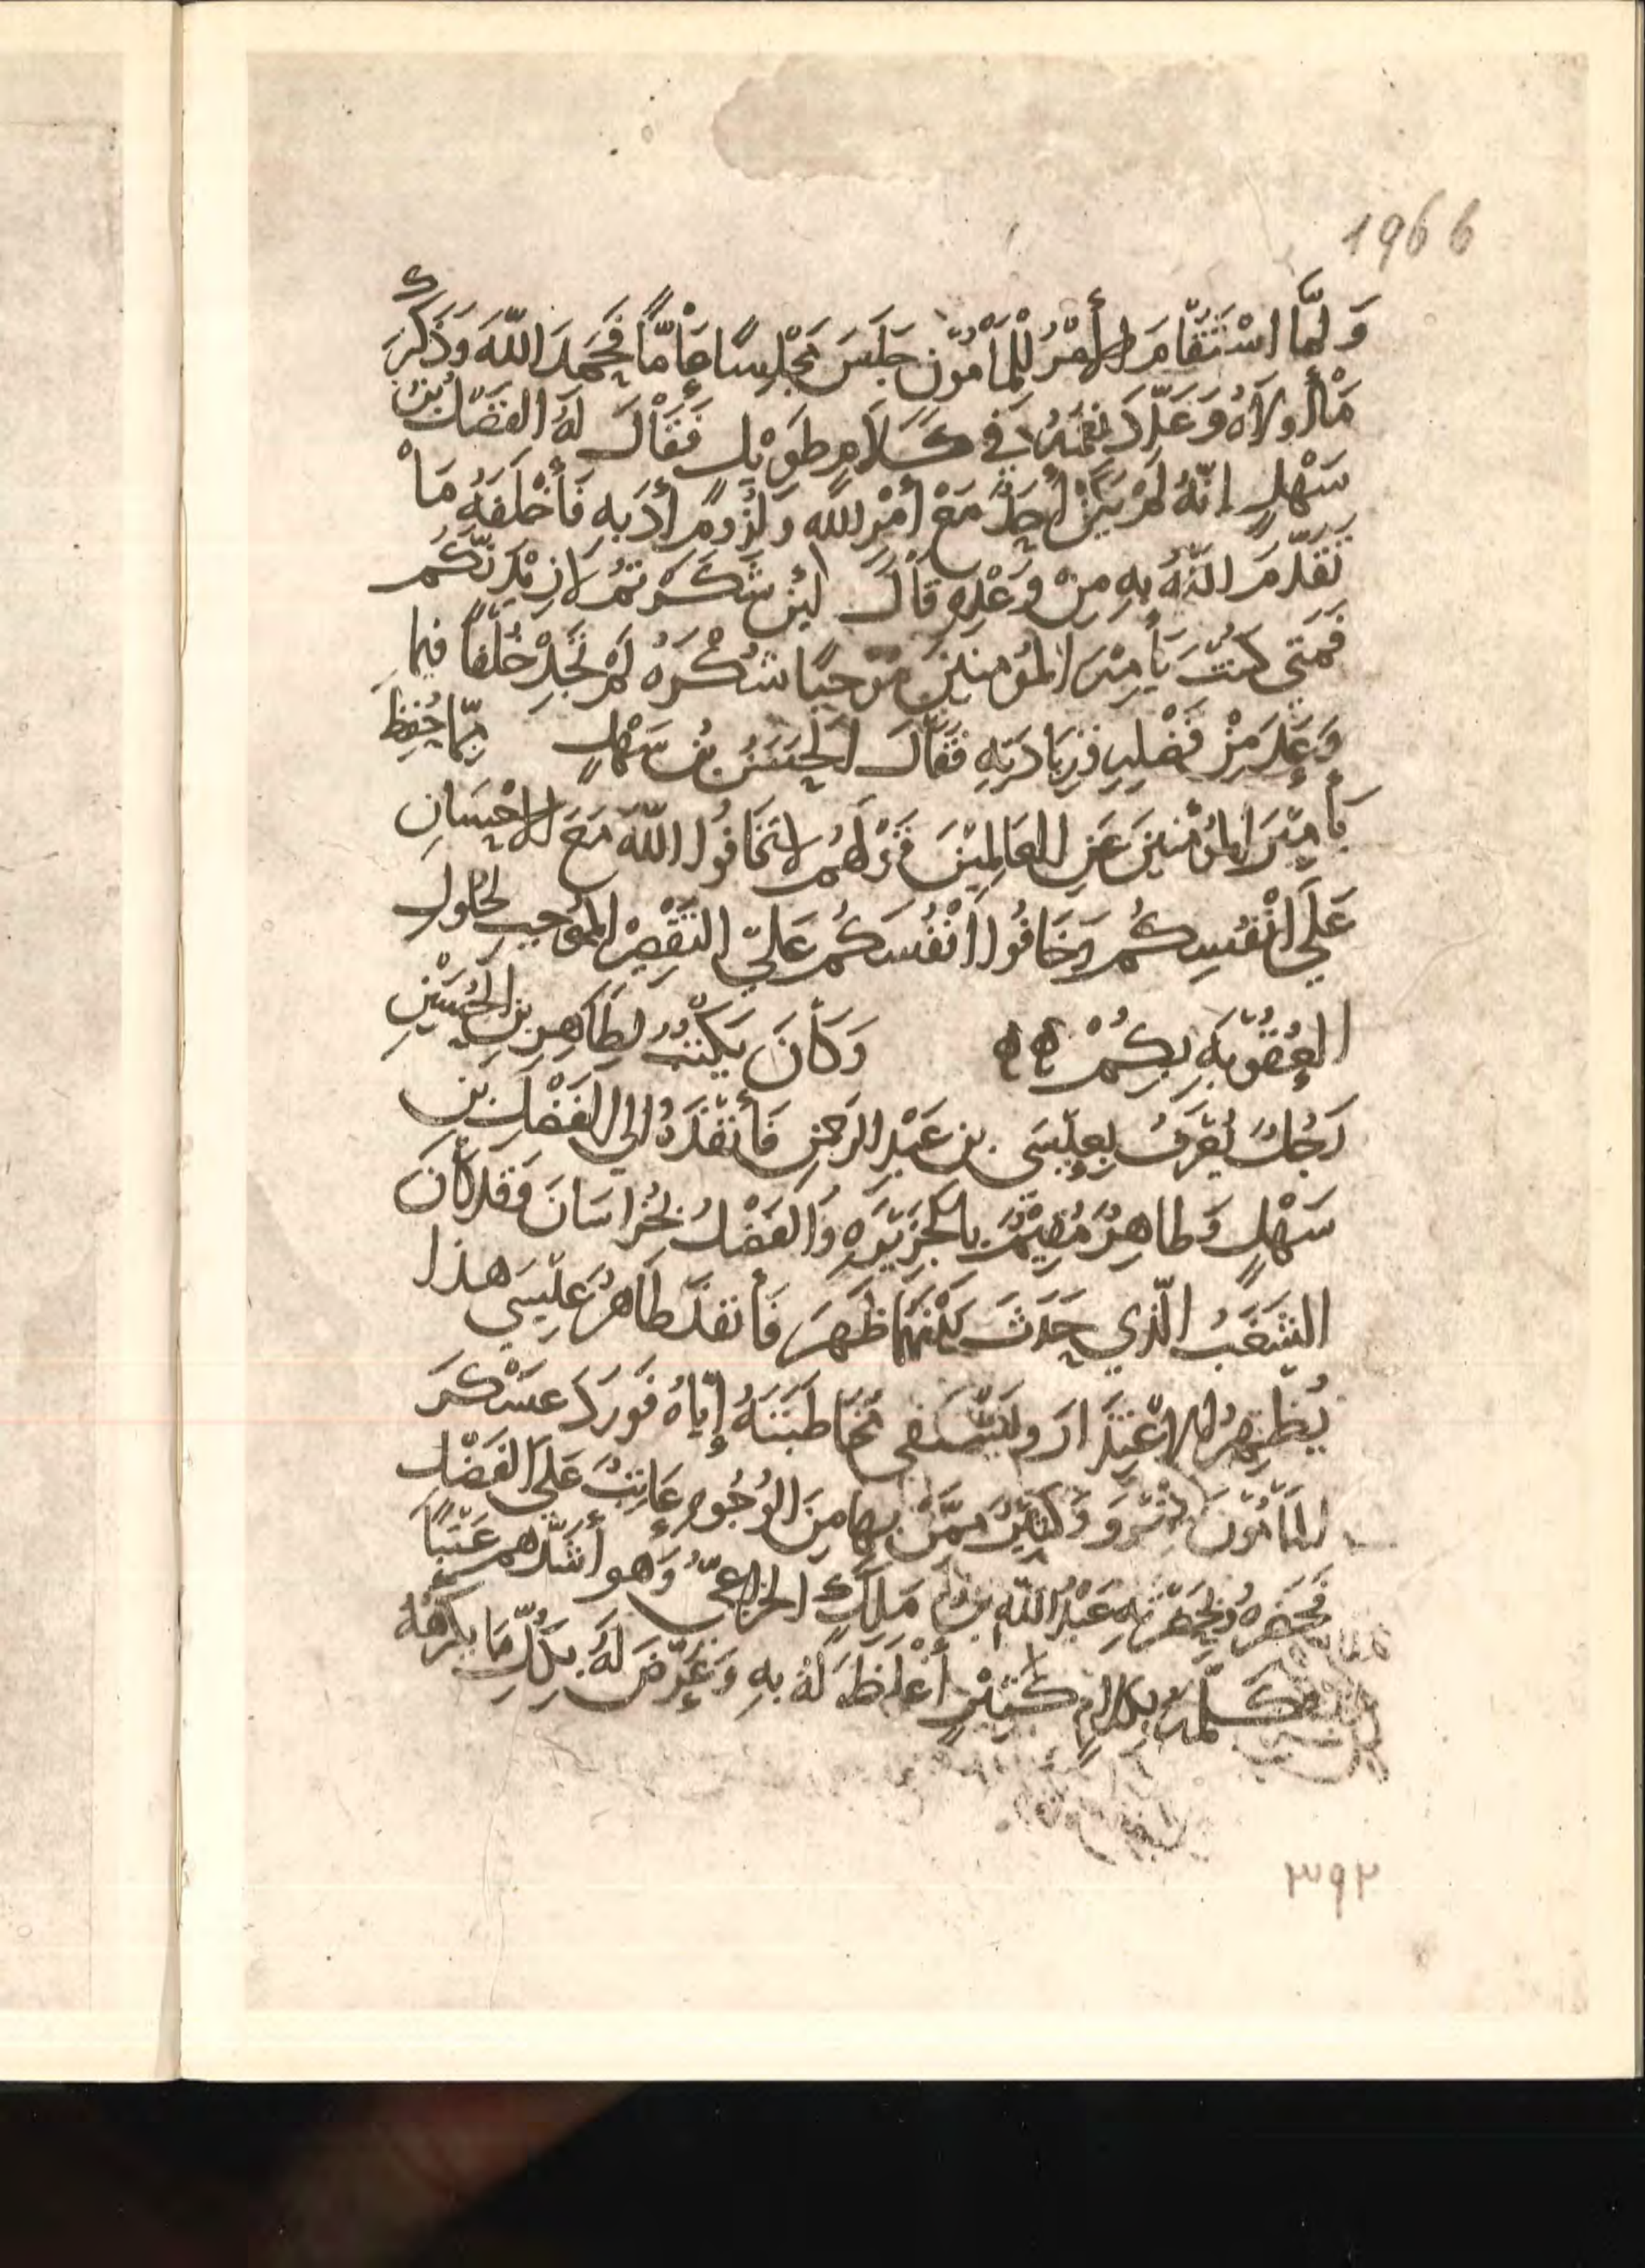 1966
وَلَمَّا اسْتَقَامَ الأَمْرُ لِلْمَأمُون جَلَسَ مَجْلِسًا عَامًّا فَحَمِدَ اللّهَ وَذَكَرَ
مَا أَولاَهُ وَعَدَّدَ نِعَمَهُ في كَلَامٍ طَوِيْلٍ فَقَالَ لَهُ الفَضْلُ بْنُ
سَهْلٍ إنّهُ لَمْ يَكُنْ أَحَدٌ مَعْ أَمْرِ اللّه وَلُزُومِ أَدَبِهِ فَأَخْلَفَهُ مَا
تَقَدَّمَ اللّهُ بِهِ مِنْ وَعْدِهِ قَالَ لَئِن شَكَرْتُمْ لَازِيْدَنَّكُم
فَمَتى كُنْتَ يَأَمِيْرَ المُؤمِنِينَ مُوْجِبًا شُكْرَهُ لَمْ تَجِدْ خُلْفًا فِيمَا
وَعَدَ مِنْ فَضْلِهِ وَزِيَادَتِهِ فَقَالَ الحَسَنُ بْنُ سَهْلٍ مِمّا حُفِظَ
يَأَمِيْرَ المُؤْمِنِينَ عَنِ العَالِمِيْنَ قَوْلَهُم لا تَخَافُوا اللّهَ مَعَ الاحْسَانِ
عَلَى انْفُسِكُم وَخَافُوا أَنْفُسَكُمْ عَلَى التَقْصِيْرِ المُوْجِبِ لحُلُولِ
العُقُوْبَةِ بِكُمْ وَكَانَ يَكْتُبُ لِطَاهِرِ بنِ الحُسَيْنِ
رَجُلٌ يُعْرَفُ بِعِيْسَى بن عَبْدِ الرَحْمنِ فَأَنْفَذَهُ إلى الفَضْلِ بنِ
سَهْلٍ وَطاهِرٌ مُقِيْمٌ بِالجَزِيْرَةِ وَالفَضْلُ بخُرَاسَانَ وَقَدْ كَانَ
الشَغَبُ الّذِي حَدَثَ بَيْنَهُمَا ظَهَرَ فَأَنفَذَ طَاهِرٌ عِيْسَى هذا
يُظْهِرُ الاِعْتِذَارَ وَ مُخَاطَبَتَهُ إيّاهُ فَوَرَدَ عَسْكَرَ
المَأمُونَ بِمَرْوَ وَكَثِيْرٌ مِمَّنْ بِهَا مِنَ الوُجُوهِ عَاتِبٌ عَلَى الفَضْلِ
فَحَضَرَهُ وَبِحَضْرَتِهِ عَبْدُ اللّهِ بْنُ مَلِكٍ الخزاعِيُّ وَهو أَشَدُّهُم عَتْبًا
فَكَلَّمَهُ بِكَلَامٍ كَثِيْرٍ أَغْلَظَ لَهُ بِهِ وَعَرَّضَ لَهُ بِكُلِّ مَا يَكْرَهُهُ
٣٩٢